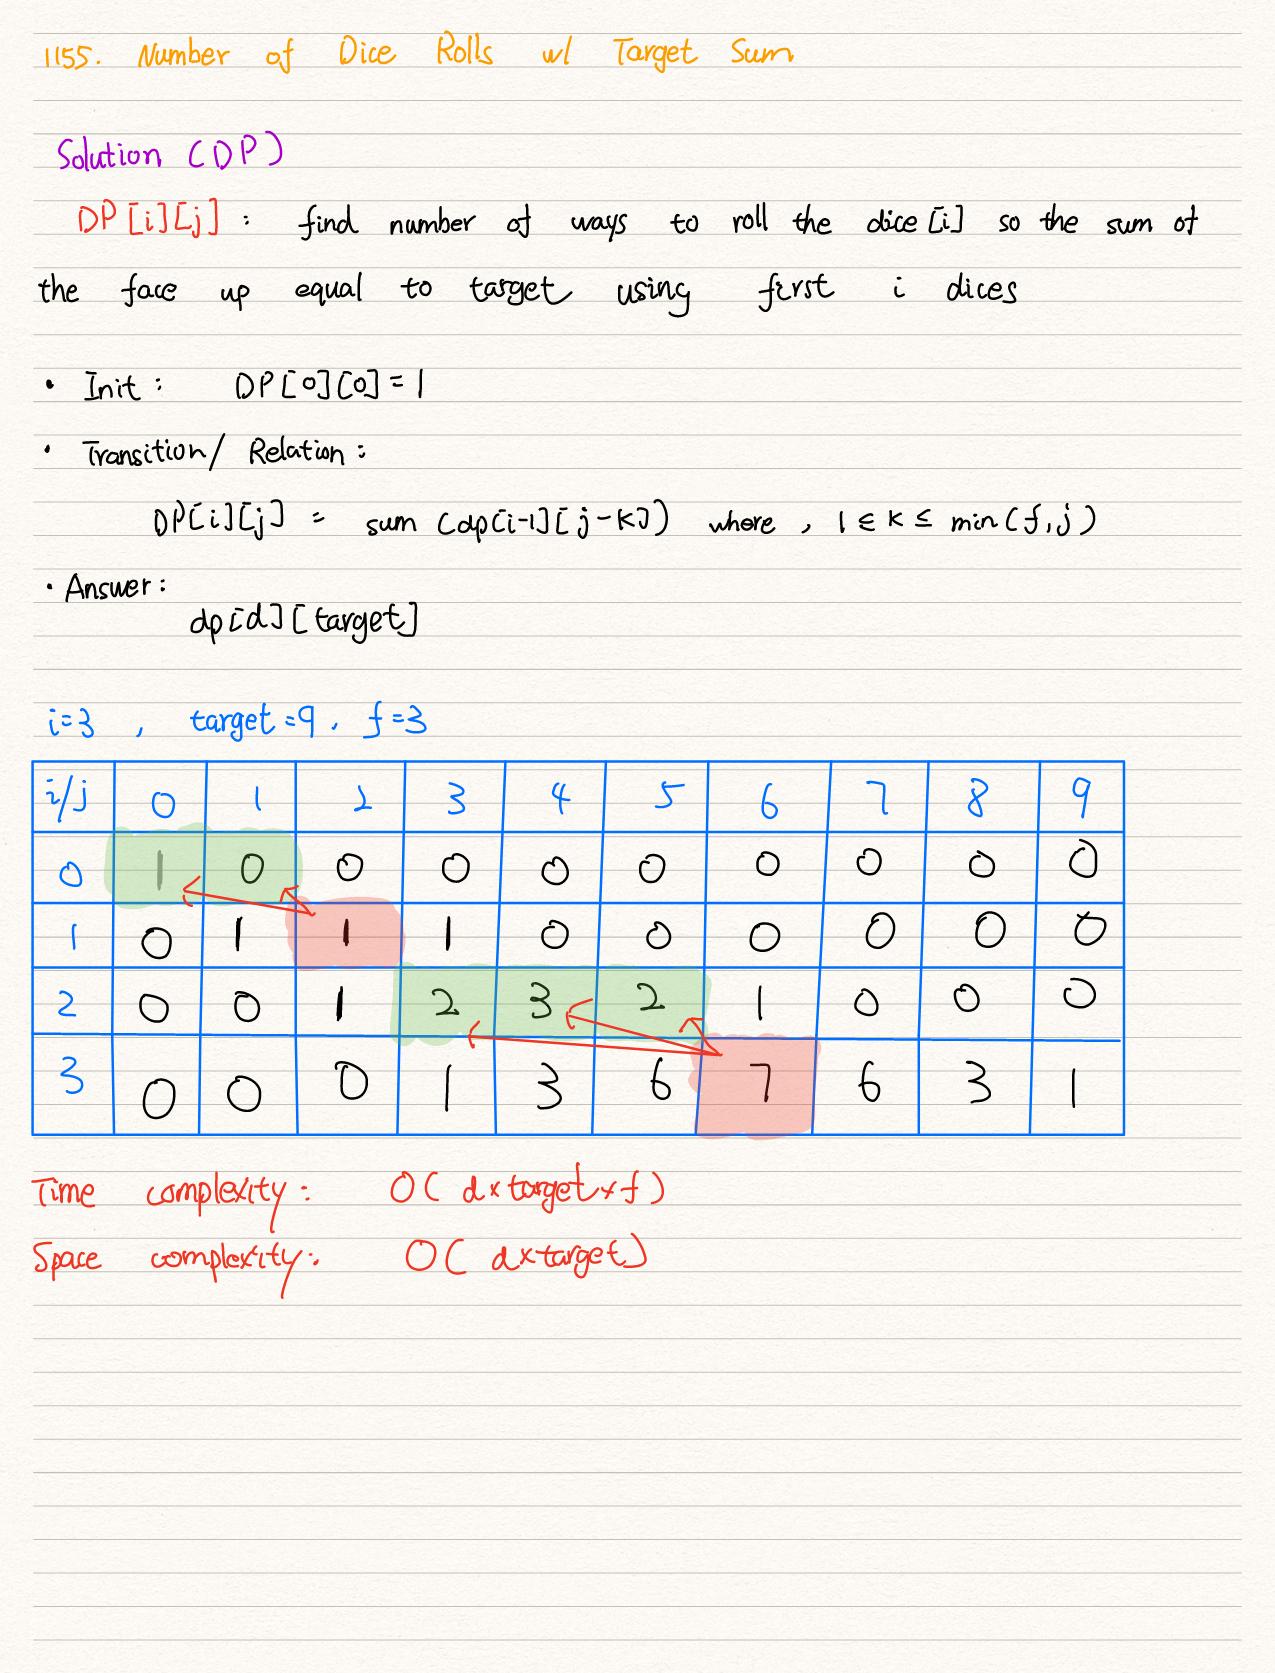 1155. Number of Dice Rolls w/ Target Sum
Solution (DP)
DP[i][j] : find number of ways to roll the dice[i] so the sum of
the face up equal to target using first i dices
• Init : DP[0][0] = 1
• Transition / Relation :
DP[i][j] = sum (dp[i-1][j-k]) where , 1 ∈ k ≤ min(f,j)
• Answer :
dp[d][target]
i=3 , target=9 , f=3
i/j 0 1 2 3 4 5 6 7 8 9
0 1 0 0 0 0 0 0 0 0 0
1 0 1 1 1 0 0 0 0 0 0
2 0 0 1 2 3 2 1 0 0 0
3 0 0 0 1 3 6 7 6 3 1
Time complexity : O( d×target×f )
Space complexity : O( d×target )